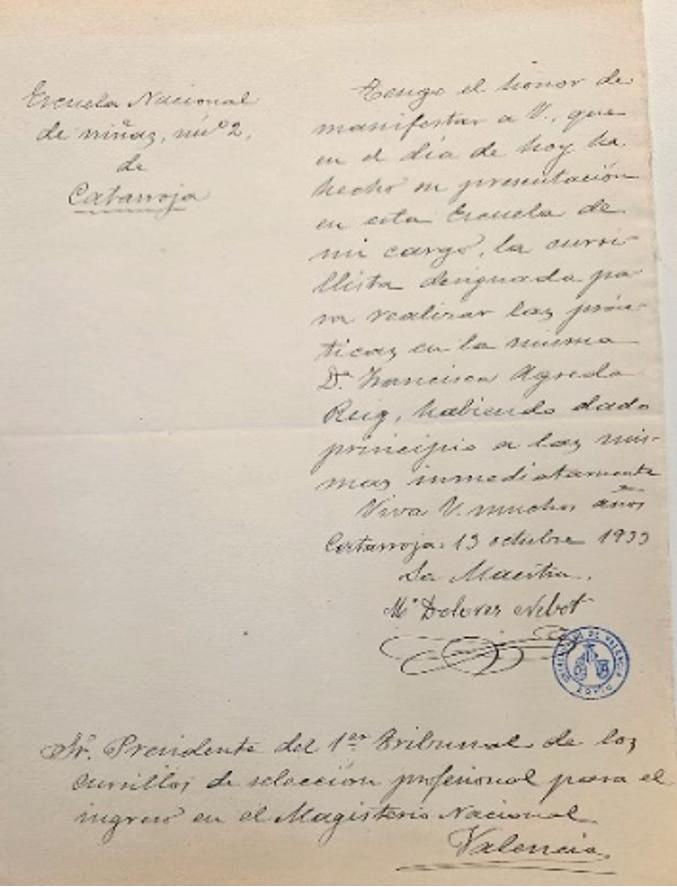 Escuela Nacional
de niñas, núº 2,
de
Catarroja
Tengo el honor de
manifestar a V., que
en el día de hoy ha
hecho su presentación
en esta Escuela de
mi cargo, la cursi-
llista designada pa-
ra realizar las prác-
ticas en la misma
Dª. Francisca Agreda
Reig, habiendo dado
principio a las mis-
mas inmediatamente
Viva V. muchos años
Catarroja, 13 octubre 1933
La Maestra,
Mª Dolores Nebot
UNIVERSIDAD DE VALENCIA
Sr. Presidente del 1er Tribunal de los
cursillos de selección profesional para el
ingreso en el Magisterio Nacional
Valencia